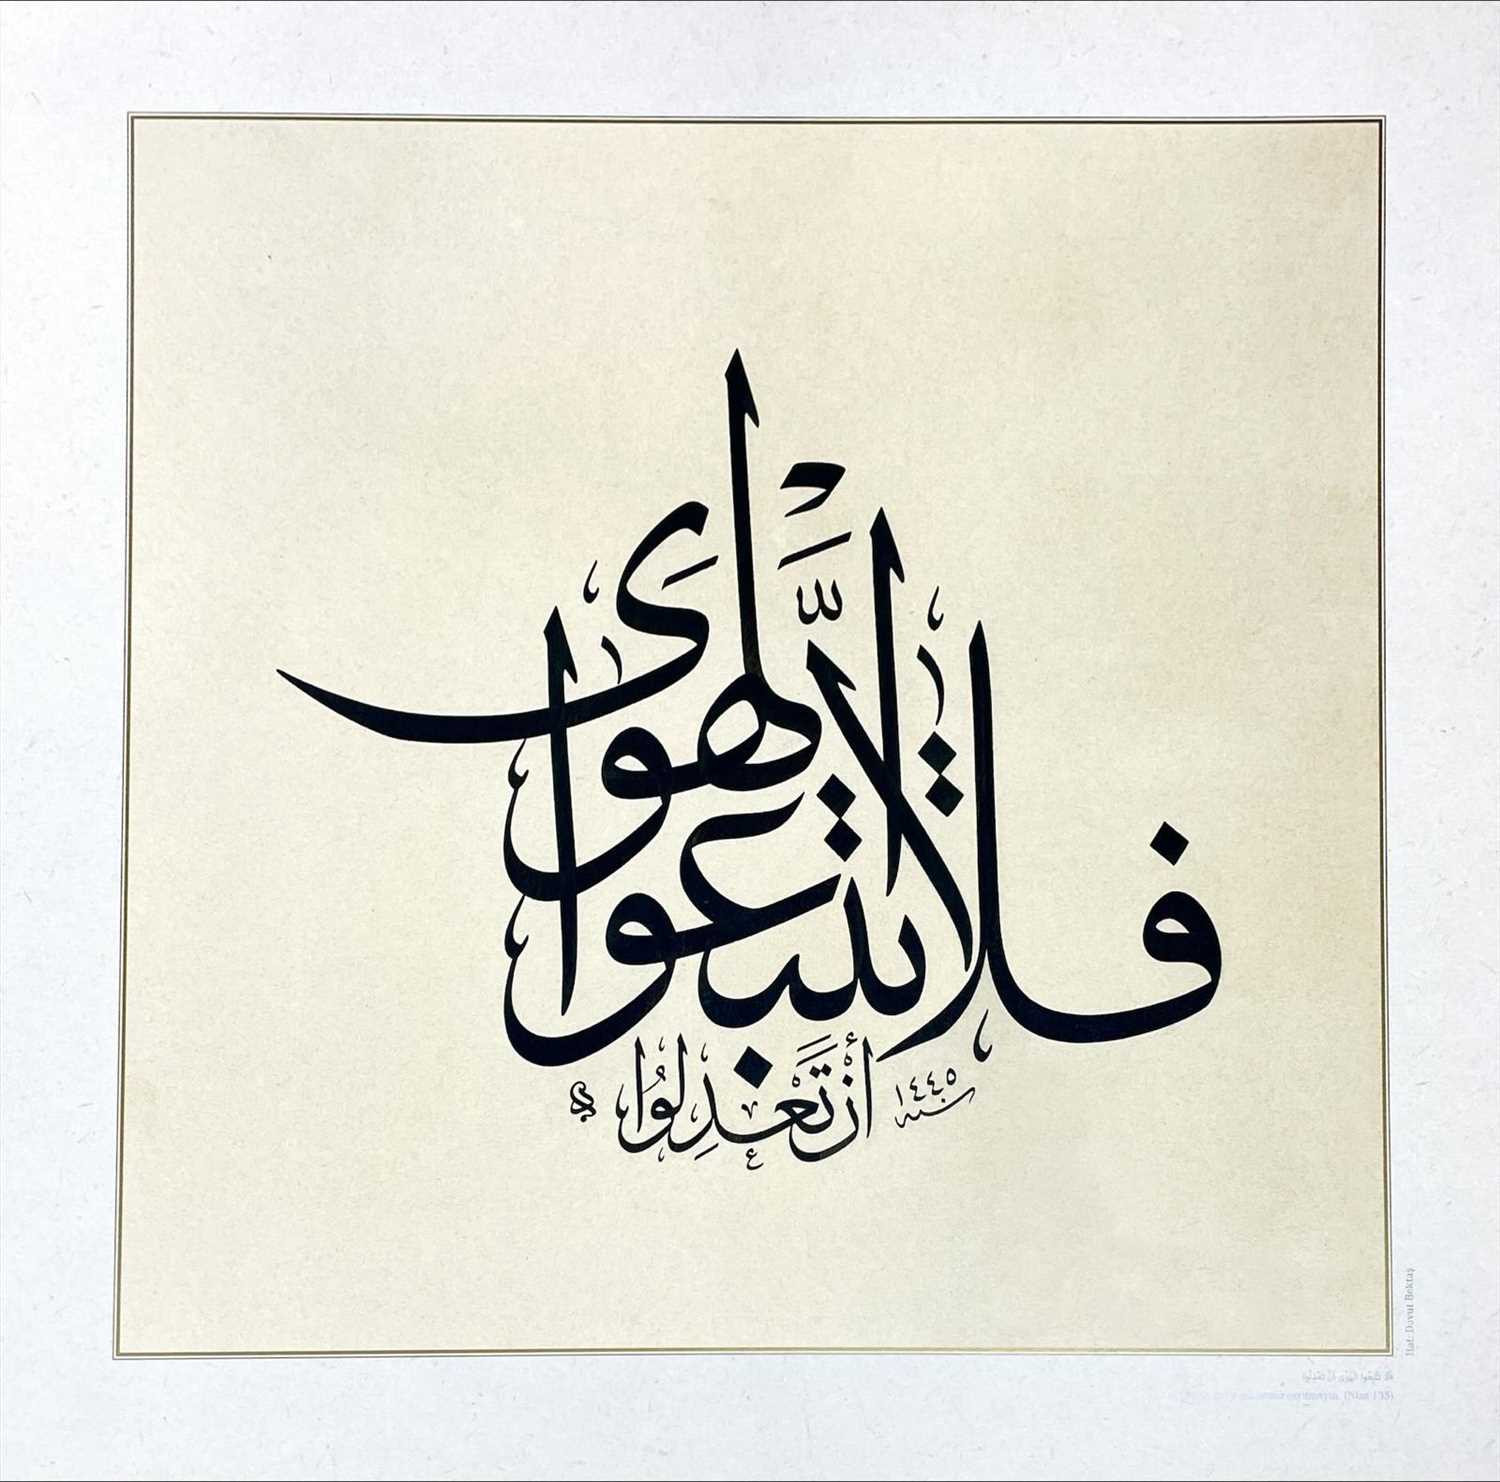 فلا تتبعوا الهوى
أَنْ تَعْدِلُوا
سنه ١٤٤٥
Hat: Davut Bektaş
فَلَا تَتَّبِعُوا الْهَوَى أَنْ تَعْدِلُوا
(Nisa 135)